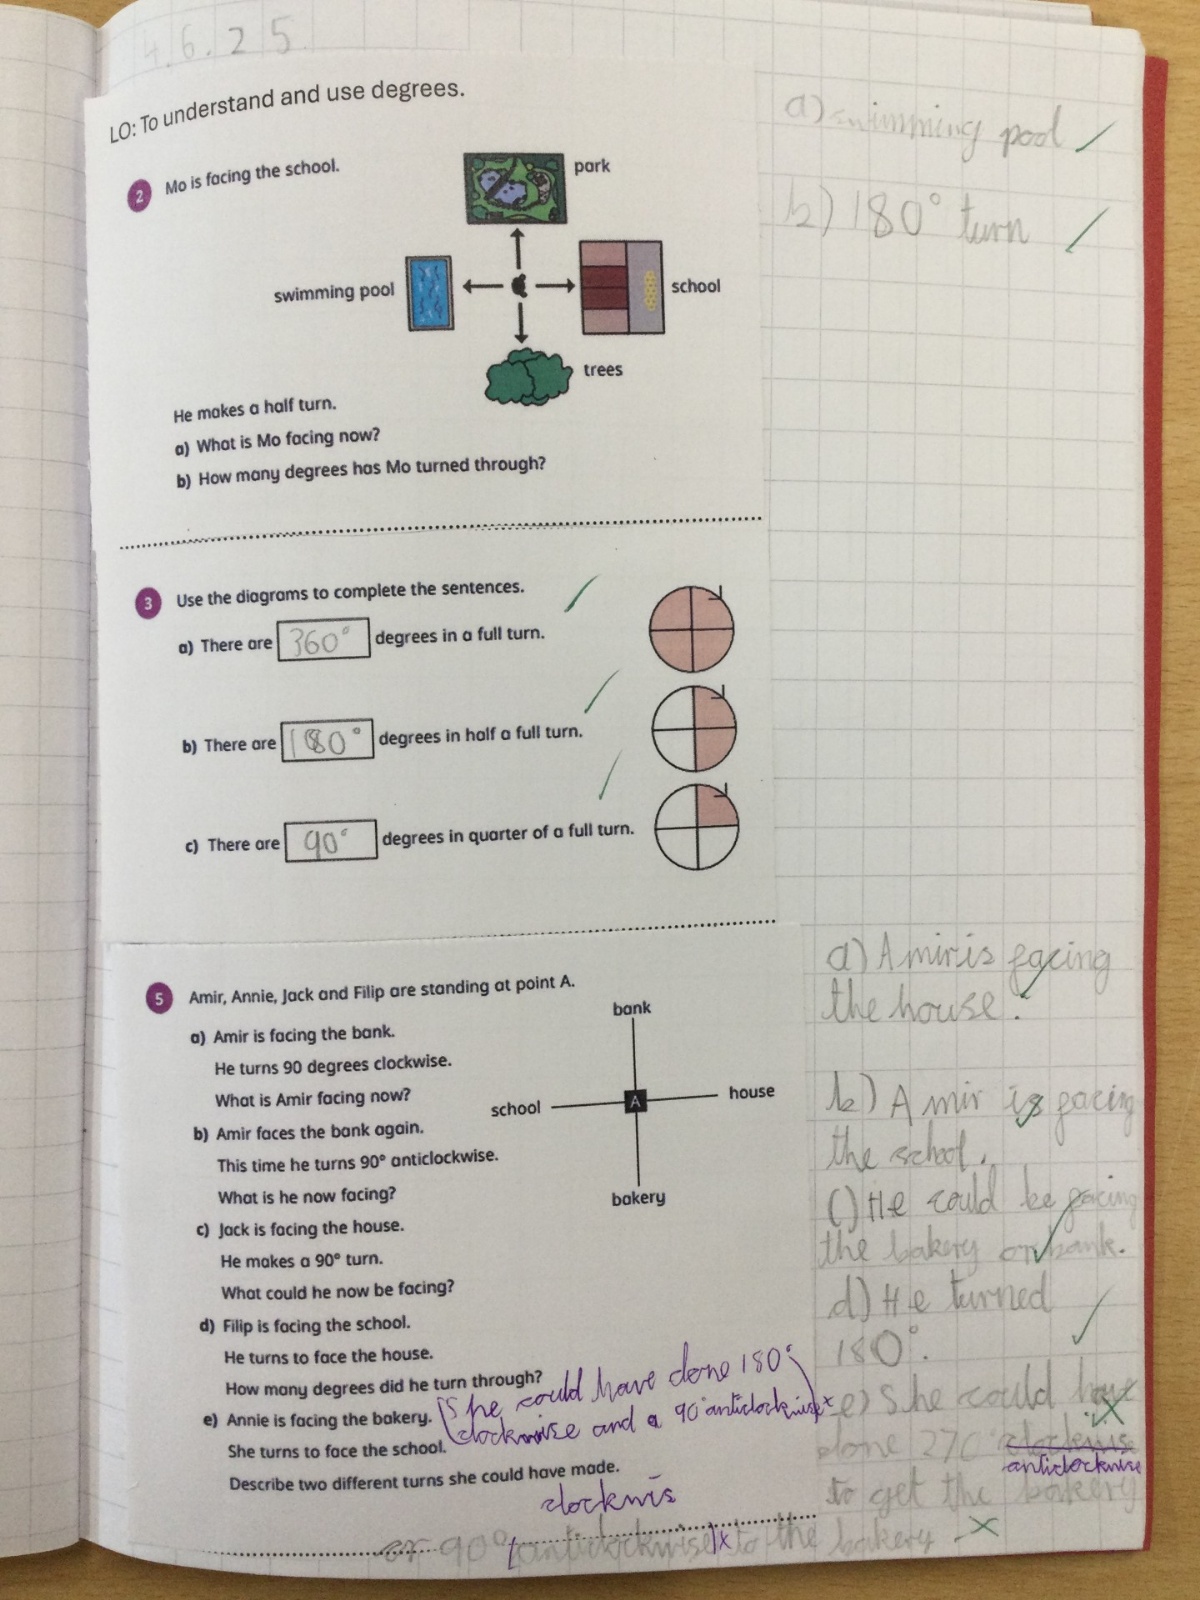 4.6.25
LO: To understand and use degrees.
2 Mo is facing the school.
park
swimming pool
school
trees
He makes a half turn.
a) What is Mo facing now?
b) How many degrees has Mo turned through?
a) swimming pool
b) 180° turn
3 Use the diagrams to complete the sentences.
a) There are 360° degrees in a full turn.
b) There are 180° degrees in half a full turn.
c) There are 90° degrees in quarter of a full turn.
5 Amir, Annie, Jack and Filip are standing at point A.
a) Amir is facing the bank.
He turns 90 degrees clockwise.
What is Amir facing now?
b) Amir faces the bank again.
This time he turns 90° anticlockwise.
What is he now facing?
c) Jack is facing the house.
He makes a 90° turn.
What could he now be facing?
d) Filip is facing the school.
He turns to face the house.
How many degrees did he turn through?
e) Annie is facing the bakery.
She turns to face the school.
Describe two different turns she could have made.
bank
school
A
house
bakery
She could have done 180°
clockwise and a 90 anticlockwise
clockwis
a) Amir is facing
the house.
b) Amir is facing
the school.
c) He could be facing
the bakery or bank.
d) He turned
180°.
e) She could have
done 270 clockwis
anticlockwise
to get the bakery
or 90° (anticlockwise) to the bakery